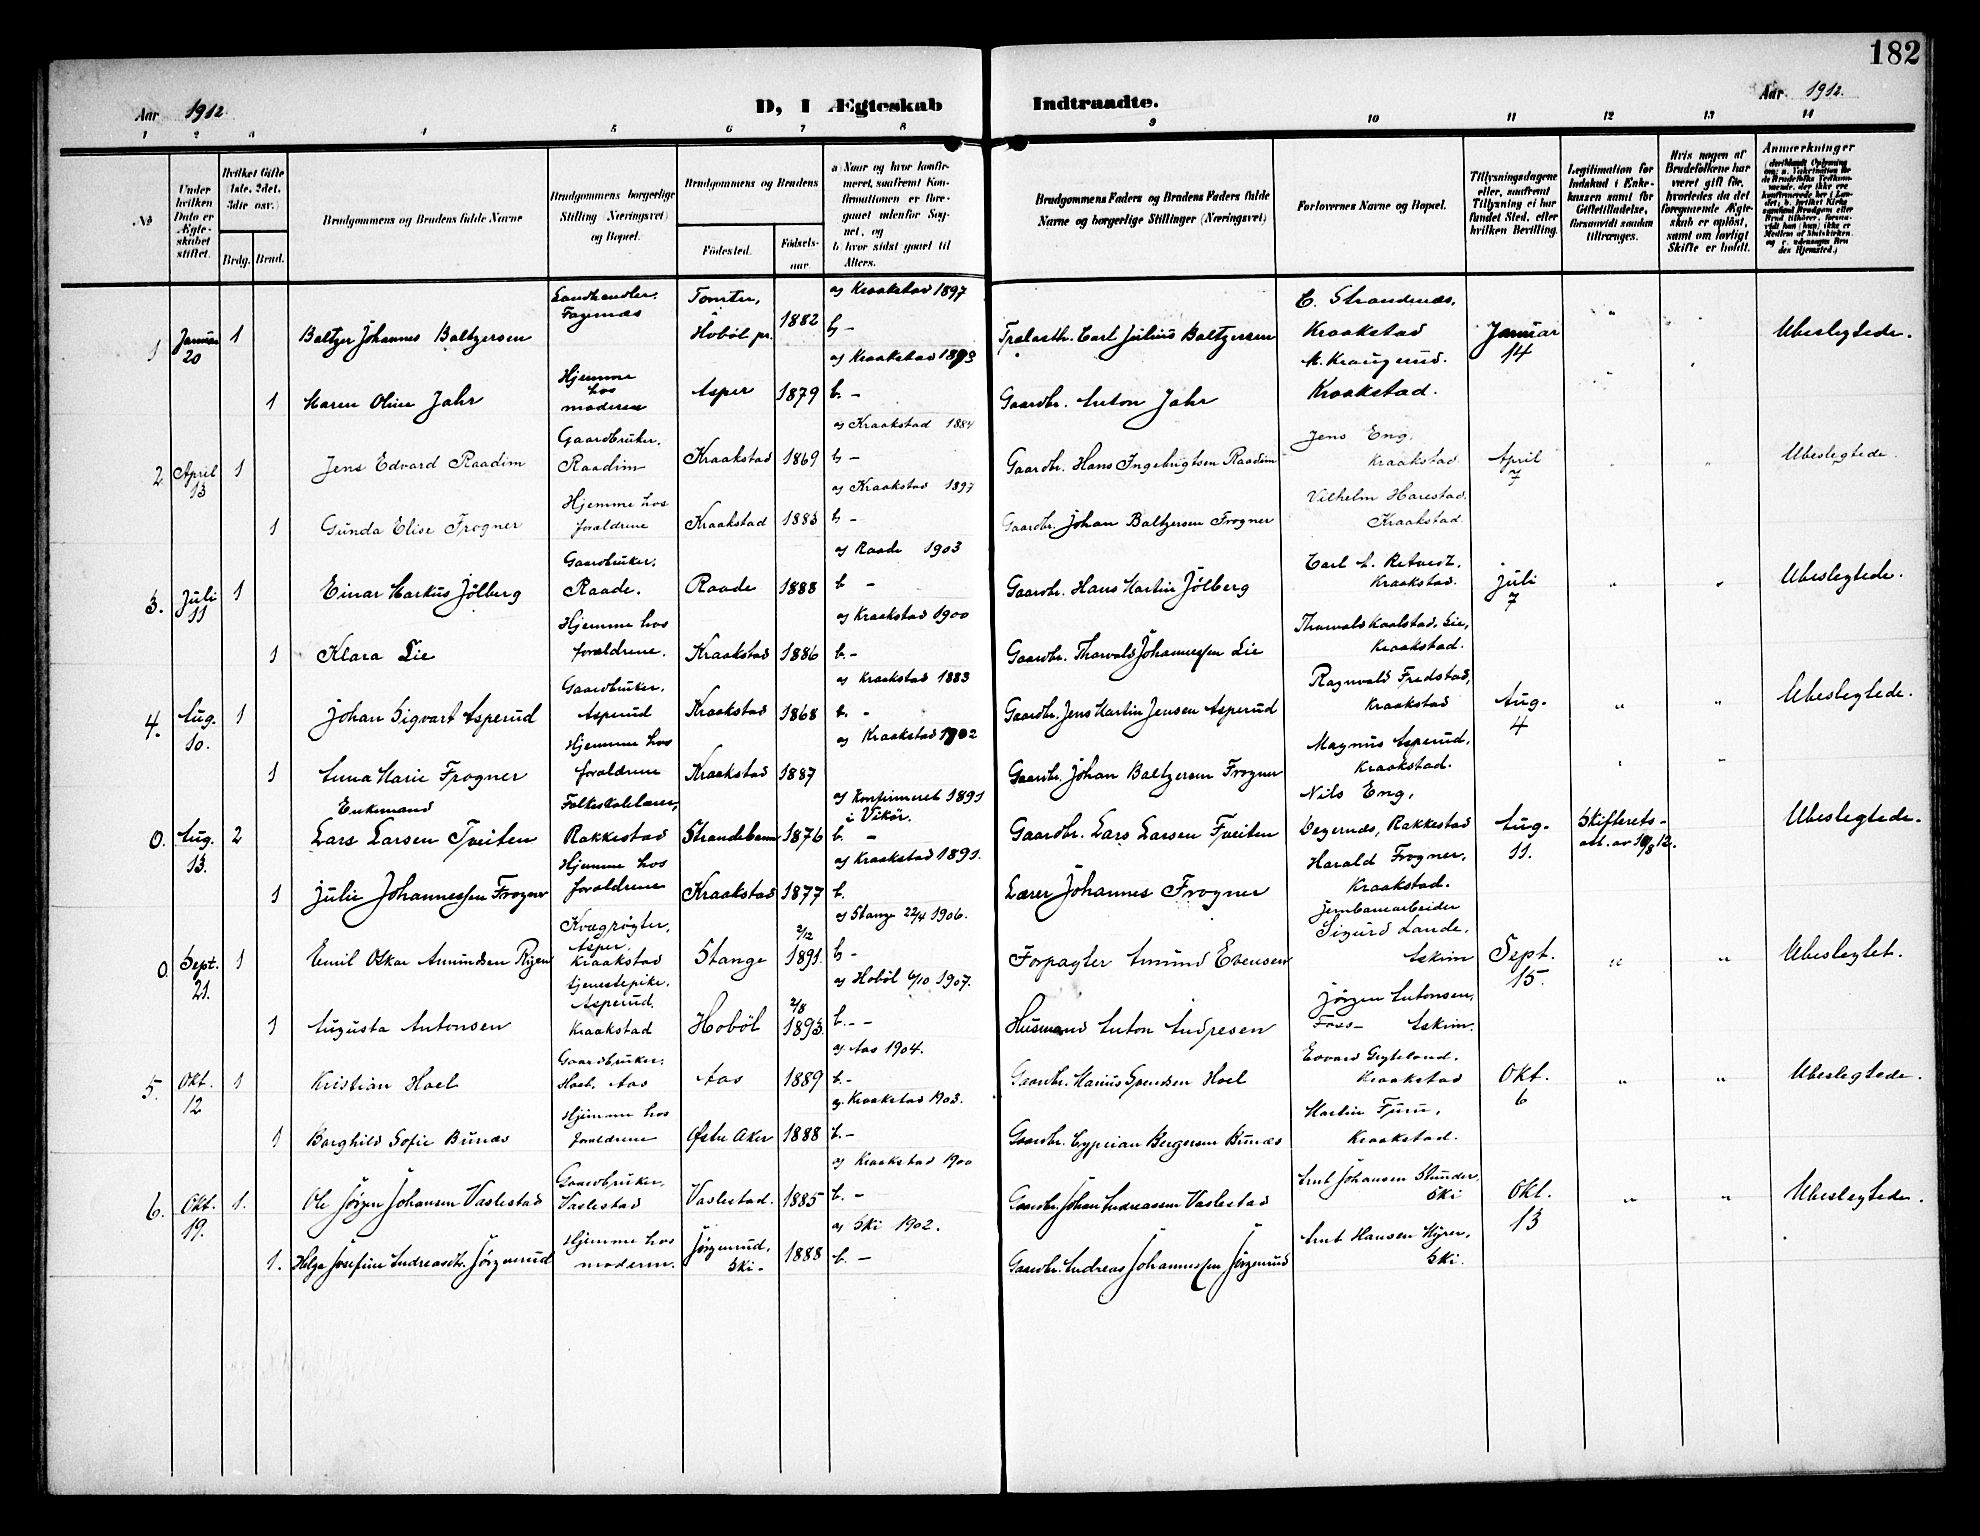 182
Aar 1912.
D, I Ægteskab Indtraadte.
Aar 1912.
1 2 3 4 5 6 7 8 9 10 11 12 13 14
No
Under hvilken Dato er Ægteskabet stiftet.
Hvilket Gifte (1ste, 2det, 3die osv.)
Brdg. Brud.
Brudgommens og Brudens fulde Navne
Brudgommens borgerlige Stilling (Næringsvei) og Bopæl.
Brudgommens og Brudens
Fødested. Fødselsaar.
a) Naar og hvor konfirmeret, saafremt Konfirmationen er foregaaet udenfor Sognet, og
b) hvor sidst gaaet til Alters.
Brudgommens Faders og Brudens Faders fulde Navne og borgerlige Stillinger (Næringsvei)
Forlovernes Navne og Bopæl.
Tillysningsdagene eller, saafremt Tillysning ei har fundet Sted, efter hvilken Bevilling.
Legitimation for Indskud i Enkekassen samt for Giftetilladelse, forsaavidt saadan tiltrænges.
Hvis nogen af Brudefolkene har været gift før, hvorledes da det foregaaende Ægteskab er opløst, samt om lovligt Skifte er holdt.
Anmærkninger
1 Januar 20 1 Baltzer Johannes Baltzersen Landhandler, Fagernæs Tomter, Hobøl pr. 1882 a) Kraakstad 1897 b - Carl Julius Baltzersen C. Strandenæs, Kraakstad Januar 14 " " Ubeslegtede.
1 Maren Oline Jahr Hjemme hos moderen Asper 1879 a) Kraakstad 1893 b. - Gaardbr. Anton Jahr M. Kraugerud. Kraakstad.
2 April 13 1 Jens Edvard Raadim Gaardbruker, Raadim Kraakstad 1869 a) Kraakstad 1884 b - Gaardbr. Hans Ingebrigtsen Raadim Jens Eng, Kraakstad April 7 " " Ubeslegtede.
1 Gunda Elise Frogner Hjemme hos forældrene Kraakstad 1883 a) Kraakstad 1897 b - Gaardbr. Johan Baltzersen Frogner Vilhelm Harestad, Kraakstad.
3. Juli 11 1 Einar Markus Jølberg Gaardbruker, Raade. Raade 1888 a) Raade 1903 b - Gaardbr. Hans Martin Jølberg Kraakstad. Juli 7 " " Ubeslegtede.
1 Klara Lie Hjemme hos forældrene. Kraakstad 1886 a) Kraakstad 1900 b. - Gaardbr. Thorvald Johannessen Lie Kraakstad.
4. Aug. 10. 1 Johan Sigvart Asperud Gaardbruker, Asperud Kraakstad 1868 a) Kraakstad 1883 b. - Gaardbr. Jens Martin Jensen Asperud Ragnvald Fredstad, Kraakstad Aug. 4 " " Ubeslegtede.
1 Anna Marie Frogner Hjemme hos forældrene Kraakstad 1887 a) Kraakstad 1902 Gaardbr. Johan Baltzersen Frogner Magnus Asperud, Kraakstad. " "
0. Aug. 13. 2 Enkemand Lars Larsen Tveiten Folkeskolelærer, Rakkestad Strandebarm 1876 a) Konfirmeret 1891 i Vikør. b. - Gaardbr. Lars Larsen Tveiten Nils Eng, Degernæs, Rakkestad Aug. 11. Skifteretsatt. av 10/8 12. Ubeslegtede.
1 Julie Johannessen Frogner Hjemme hos forældrene Kraakstad 1877 a) Kraakstad 1891. b. Lærer Johannes Frogner Harald Frogner, Kraakstad.
0. Sept. 21. 1 Emil Oskar Amundsen Ryen Kvægrøgter, Asper, Kraakstad Stange 2/12 1891. a) Stange 22/4 1906. b - Forpagter Amund Evensen Jernbanearbeider Sigurd Lande, Askim Sept. 15. " " Ubeslegtet.
1 Augusta Antonsen tjenestepike, Asperud. Kraakstad Hobøl 2/8 1893. a) Hobøl 6/10 1907. b. - - Husmand Anton Andresen Jørgen Antonsen, Foss - Askim.
5. Okt. 12 1 Kristian Hoel Gaardbruker, Hoel, Aas Aas 1889 a) Aas 1904. b. - Gaardbr. Marius Hoel Edvard Gryteland, Kraakstad Okt. 6 " " Ubeslegtede.
1 Borghild Sofie Bunæs Hjemme hos forældrene Østre Aker 1888 a. Kraakstad 1903. b. - Gaardbr. Cyprian Bergersen Bunæs Martin Furu, Kraakstad.
6. Okt. 19. 1. Ole Jørgen Johansen Vaslestad Gaardbruker, Vaslestad Vaslestad. 1885 a) Kraakstad 1900 b. - Gaardbr. Johan Andreassen Vaslestad Arnt Johansen Stunder, Ski Okt. 13 " " Ubeslegtede.
1. Helga Josefine Andreasdtr. Jørgenrud Hjemme hos moderen. Jørgenrud, Ski - 1888 a) Ski 1902. b. - Gaardbr. Andreas Johannessen Jørgenrud Arnt Hansen Myrer, Ski.